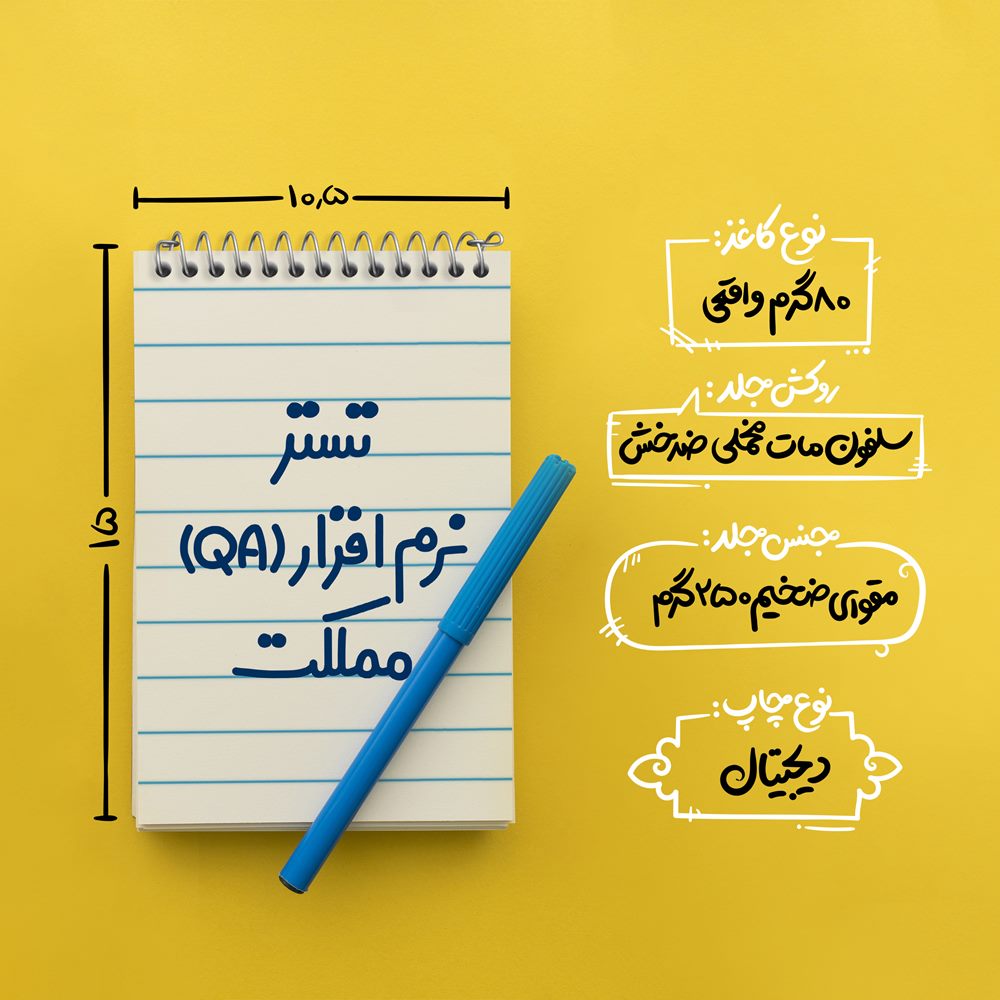 ۱۰,۵
۱۵
تستر
نرم افزار (QA)
مملکت
نوع کاغذ:
۸۰گرم واقعی
روکش جلد:
سلفون مات مخملی ضدخش
جنس جلد:
مقوای ضخیم ۲۵۰گرم
نوع چاپ:
دیجیتال